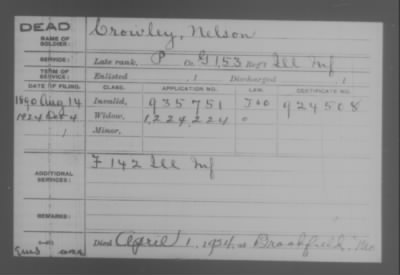 DEAD
NAME OF SOLDIER: Crowley, Nelson
SERVICE: Late rank, P Co. G 153 Reg't Ill Inf
TERM OF SERVICE: Enlisted , 1 Discharged , 1
DATE OF FILING. CLASS. APPLICATION NO. LAW. CERTIFICATE NO.
1890 Aug 14 Invalid, 935751 924508
1924 Widow, 1,224,224 0
1 Minor,
ADDITIONAL SERVICES: F 142 Ill Inf
REMARKS:
Died April 1, 1924, at Brookfield Mo